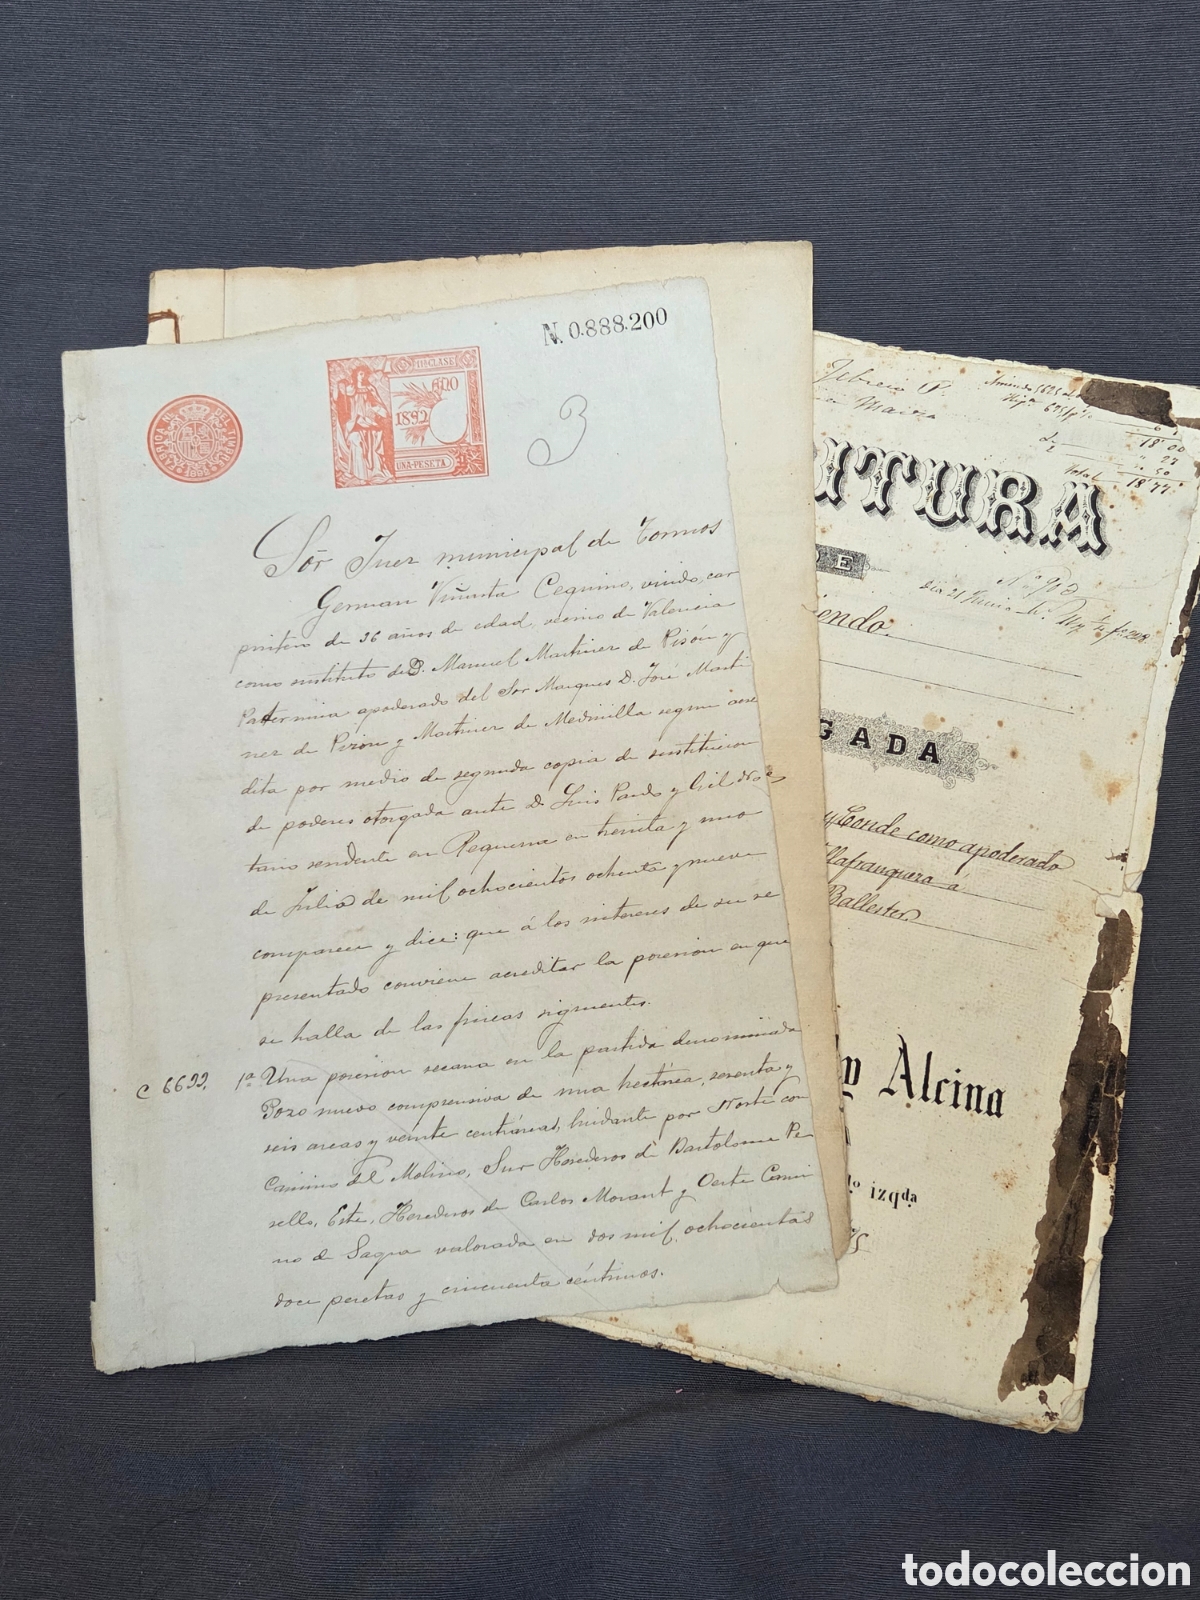 N. 0.888.200
FABRICA NL. DEL TIMBRE
1892
11ª CLASE
600
1892
UNA-PESETA
3
Sor Juez municipal de Tormos
German Viñarta Cequino, viudo, car
pintero de 36 años de edad, vecino de Valencia
como sustituto de D. Manuel Martinez de Pisón y
Paternina apoderado del Sor Marques D. José Marti
nez de Pison y Martinez de Medinilla segun acre
dita por medio de segunda copia de sustitucion
de poderes otorgada ante D. Luis Pardo y Gil No
tario residente en Requena en treinta y uno
de Julio de mil ochocientos ochenta y nueve
comparece y dice: que á los intereses de su re
presentado conviene acreditar la posesion en que
se halla de las fincas siguientes.
1ª Una posesion secana en la partida denominada
Pozo nuevo comprensiva de una hectarea, sesenta y
seis areas y veinte centiáreas, lindante por Norte con
Camino del Molino, Sur Herederos de Bartolome Pe
sello, Este, Herederos de Carlos Morant y Oeste Cami
no de Sagra valorada en dos mil ochocientas
doce pesetas y cincuenta céntimos.
C 6622.
Febrero P.
18'00
Total 18'77
ITURA
DE
Dia 21 Junio
endo.
GADA
y Conde como apoderado
llafranquera á
Ballester
y Alcina
lo izqda
todocoleccion